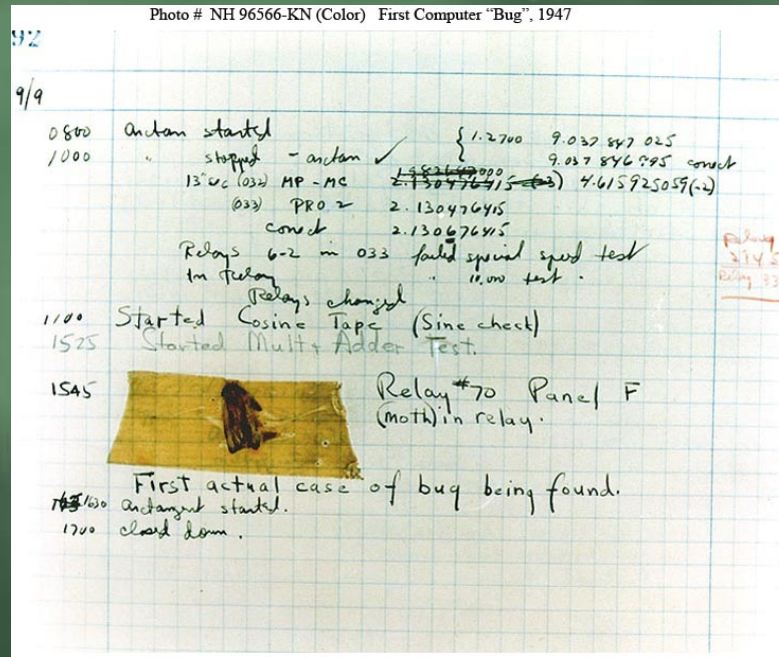 Photo # NH 96566-KN (Color) First Computer “Bug”, 1947
92
9/9
0800 Antan started
1000 " stopped - antan ✓ { 1.2700 9.037 847 025
9.037 846 995 conect
13"uc (032) MP - MC 2.130476415 (-3) 4.615925059(-2)
(033) PRO 2 2.130476415
conect 2.130676415
Relays 6-2 in 033 failed special speed test
In Relay " 10.000 test .
Relays changed
Relay
Relay 33
1100 Started Cosine Tape (Sine check)
1525 Started Mult + Adder Test.
1545 Relay #70 Panel F
(moth) in relay.
First actual case of bug being found.
1630 antangent started.
1700 closed down .